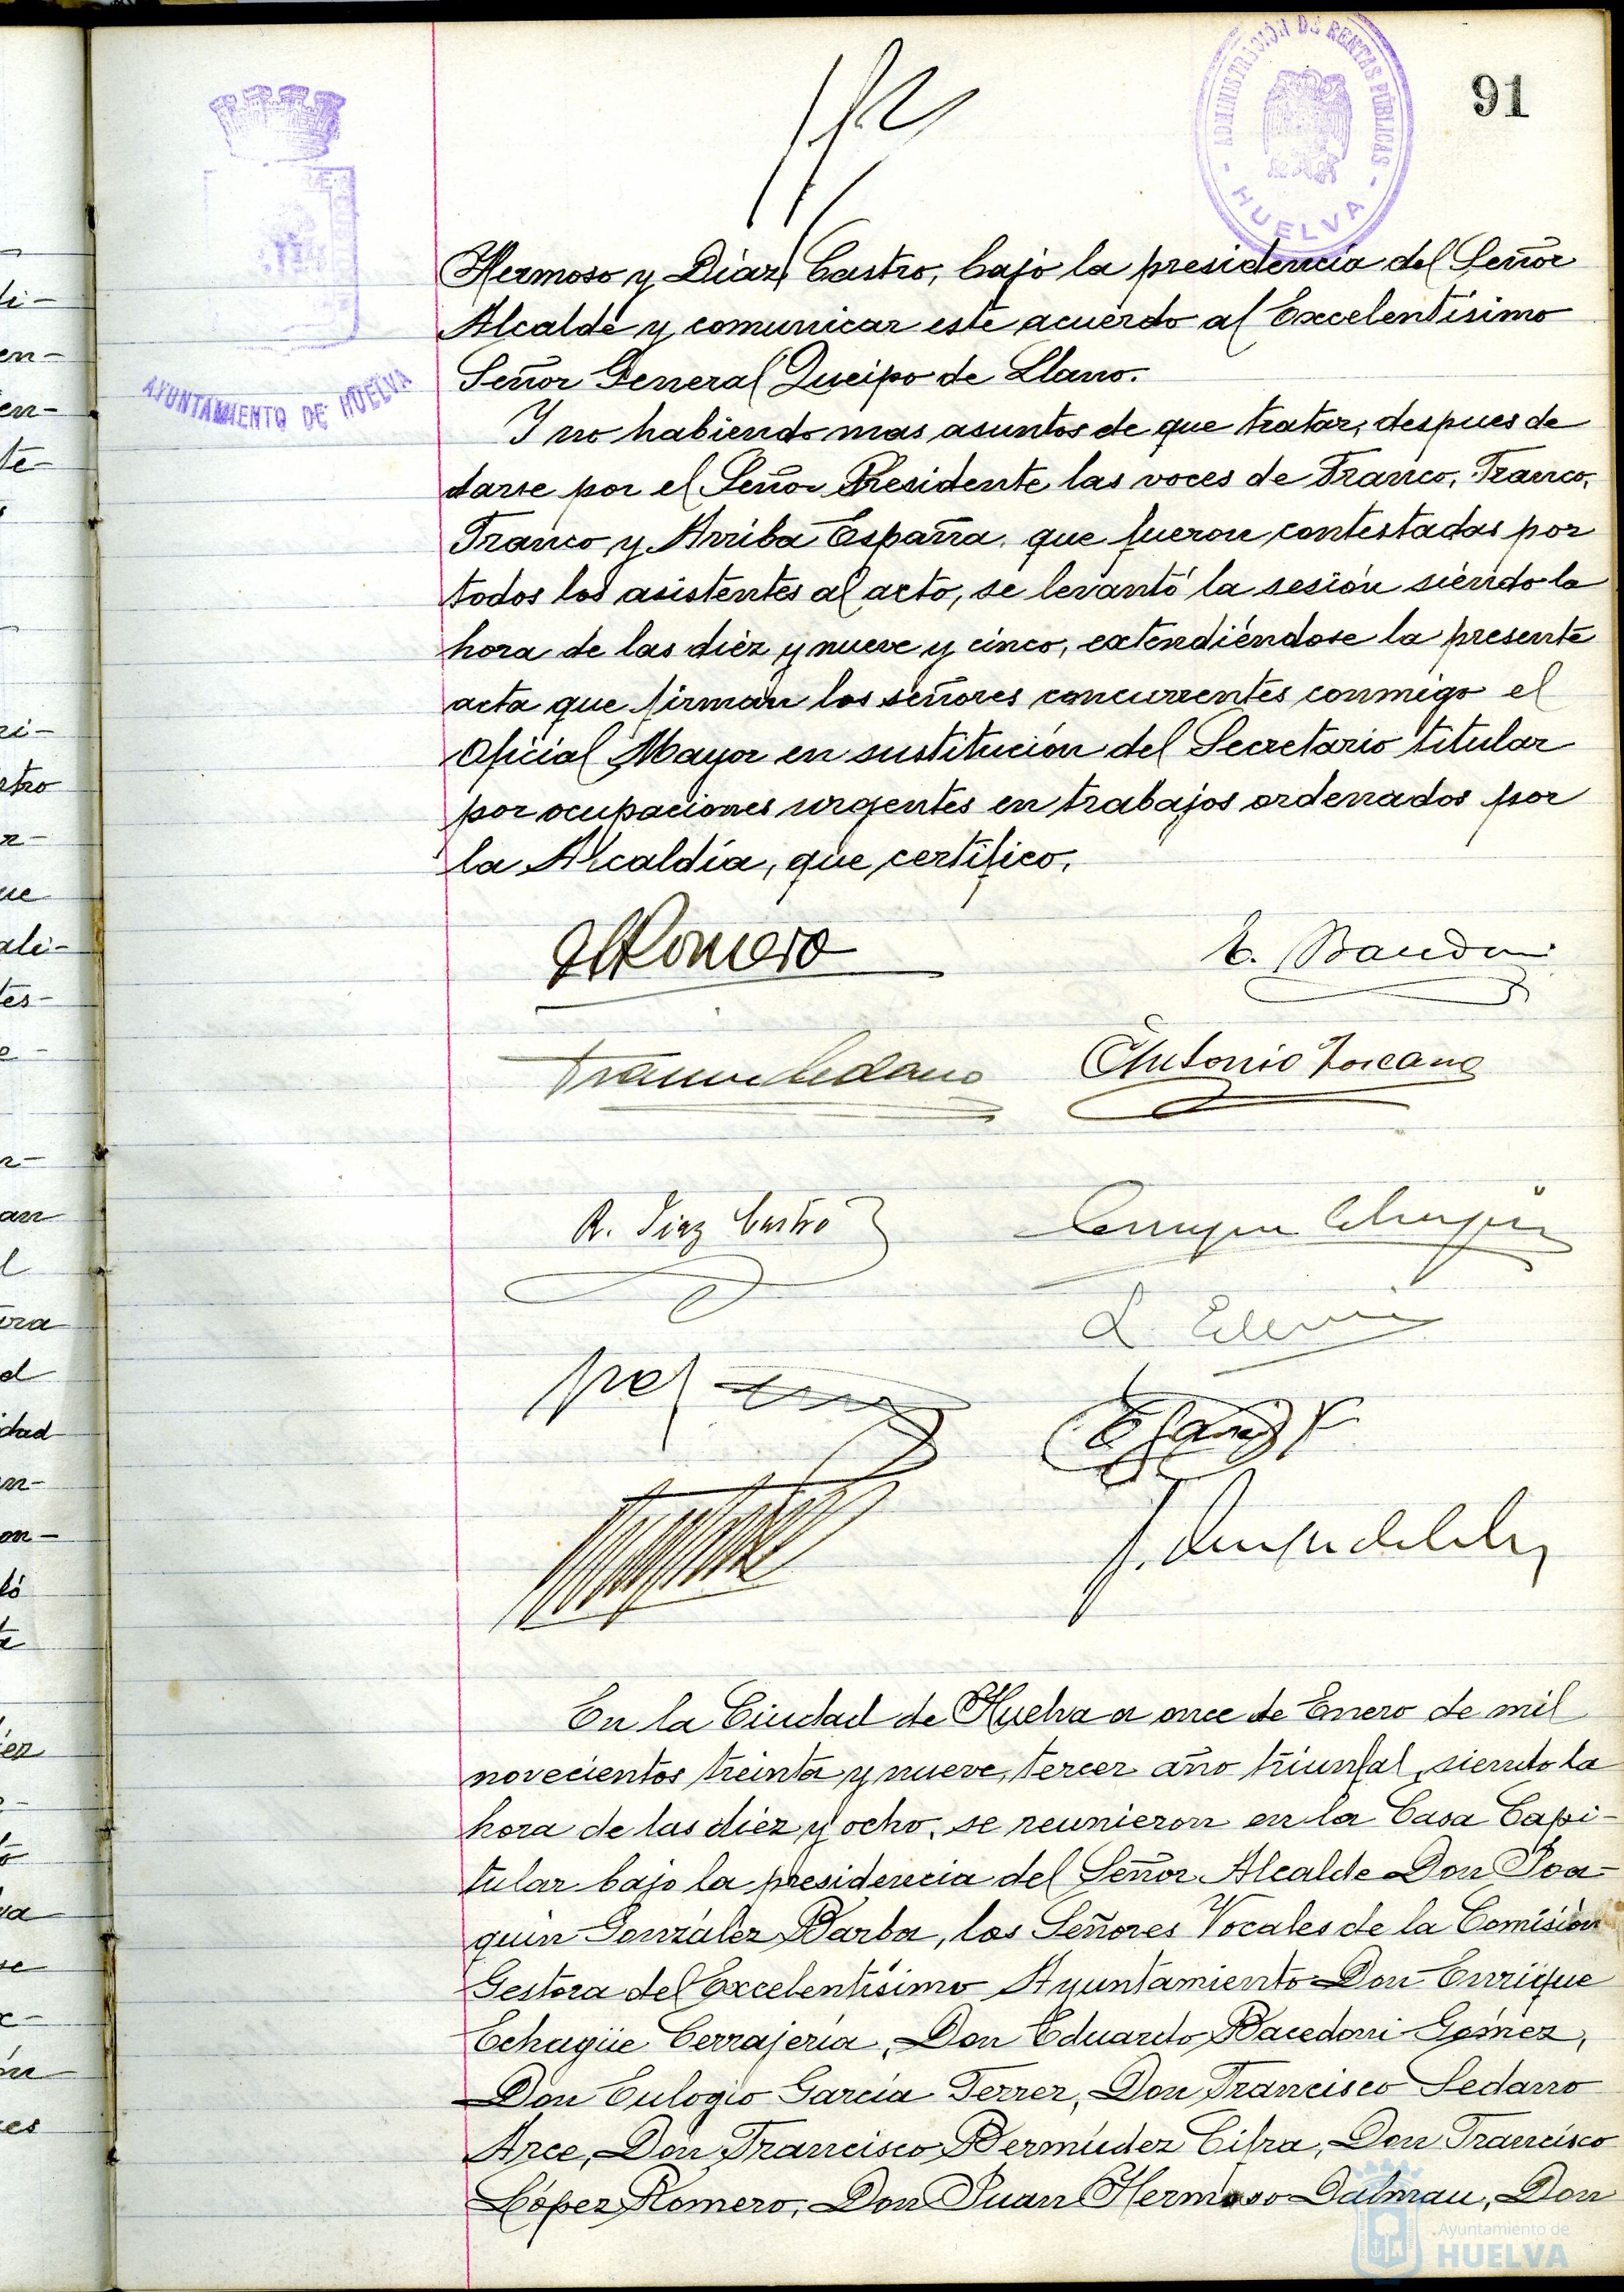 91
ADMINISTRACIÓN DE RENTAS PÚBLICAS
- HUELVA -
AYUNTAMIENTO DE HUELVA
Hermoso y Díaz Castro, bajo la presidencia del Señor
Alcalde y comunicar este acuerdo al Excelentísimo
Señor General Queipo de Llano.
Y no habiendo mas asuntos de que tratar, despues de
darse por el Señor Presidente las voces de Franco, Franco,
Franco y Arriba España, que fueron contestadas por
todos los asistentes al acto, se levantó la sesión siendo la
hora de las diez y nueve y cinco, extendiéndose la presente
acta que firman los señores concurrentes conmigo el
Oficial Mayor en sustitución del Secretario titular
por ocupaciones urgentes en trabajos ordenados por
la Alcaldía, que certifico.
Romero
Sedano
Antonio Toscano
R. Diaz Castro
En la Ciudad de Huelva a once de Enero de mil
novecientos treinta y nueve, tercer año triunfal, siendo la
hora de las diez y ocho, se reunieron en la Casa Capi-
tular bajo la presidencia del Señor Alcalde Don Joa-
quin González Barba, los Señores Vocales de la Comisión
Gestora del Excelentísimo Ayuntamiento Don Enrique
Echagüe Cerrajería, Don Eduardo Bacedoni Gómez,
Don Eulogio García Ferrer, Don Francisco Sedano
Arce, Don Francisco Bermúdez Cifra, Don Francisco
López Romero, Don Juan Hermoso Dalmau, Don
Ayuntamiento de
HUELVA